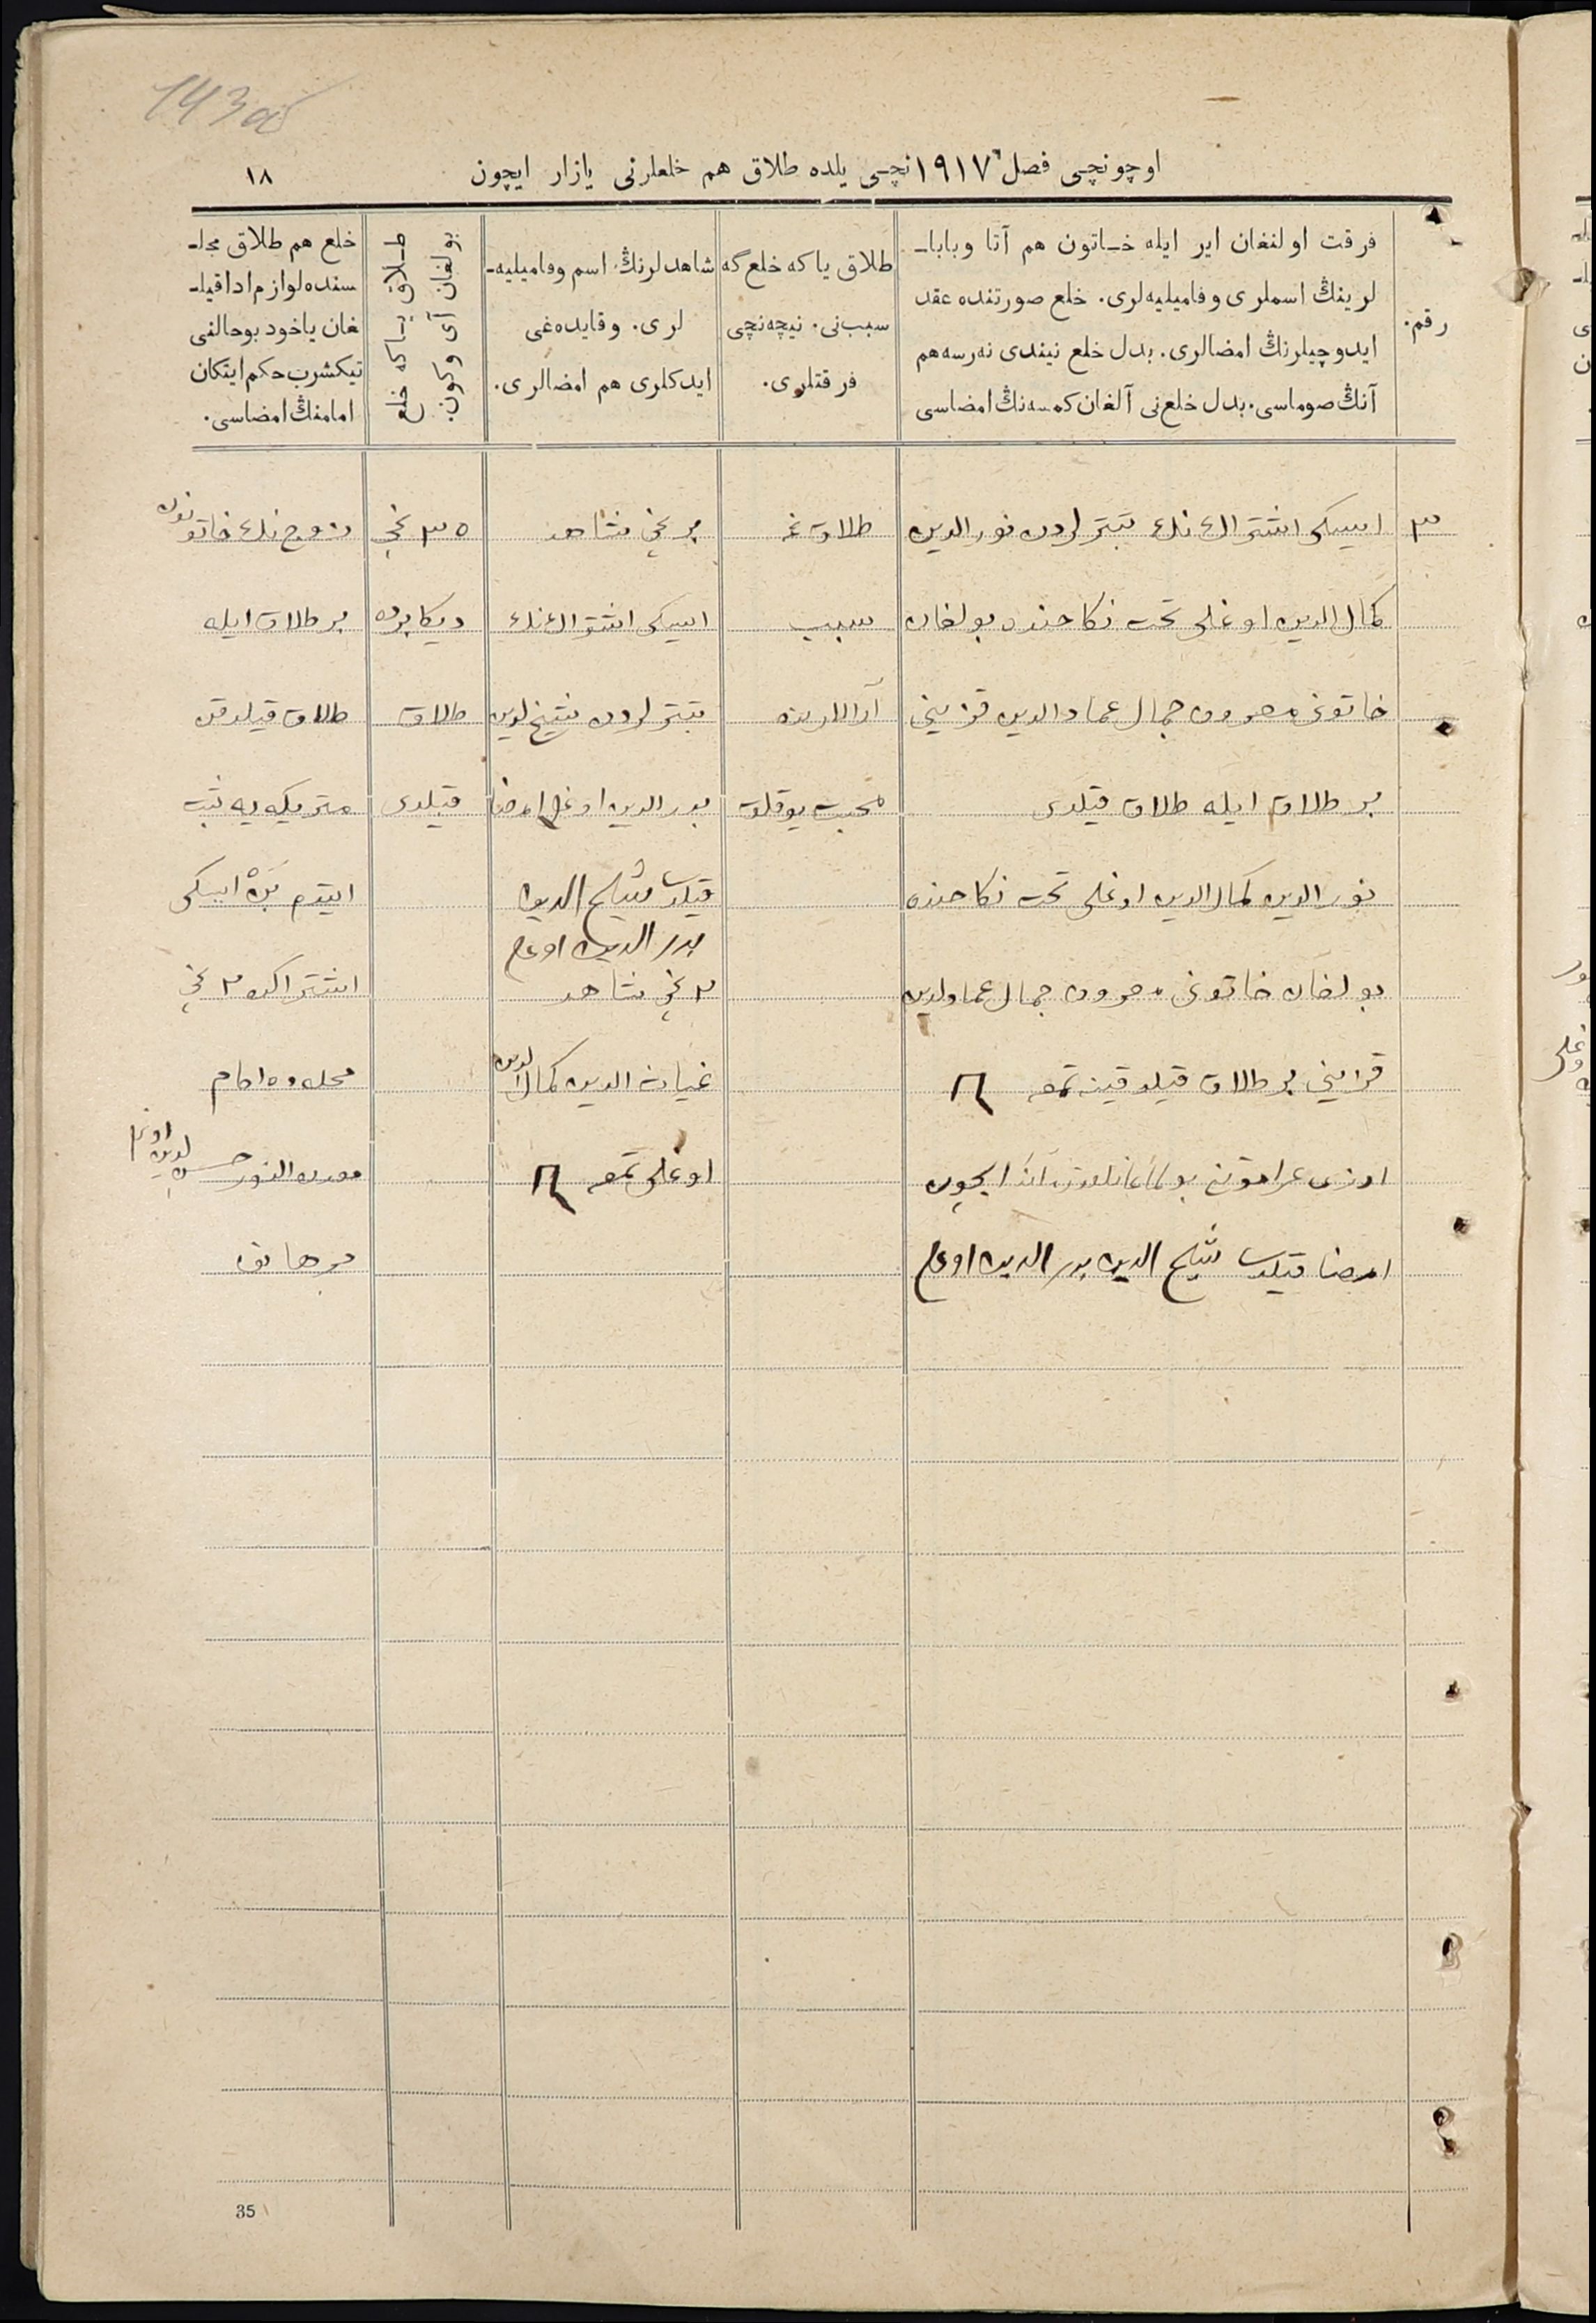 143об
اوچونچی فصل ١٩١٧ نچی یلده طلاق هم خلعلرنی یازار ایچون
١٨
رقم.
فرقت اولنغان ایر ایله خاتون هم آتا وبابا-
لرینڭ اسملری وفامیلیه‌لری. خلع صورتنده عقد
ایدوچیلرنڭ امضالری. بدل خلع نیندی نه‌رسه هم
آنڭ صوماسی. بدل خلع‌نی آلغان کمسه‌نڭ امضاسی
طلاق یاکه خلع‌گه
سبب‌نی. نیچه‌نچی
فرقتلری.
شاهدلرنڭ اسم وفامیلیه-
لری. وقایده‌غی
ایدکلری هم امضالری.
طلاق یاکه خلع
بولغان آی وکون.
خلع هم طلاق مجلـ
سنده لوازم ادا قیلـ
غان یاخود بوحالنی
تیکشرب حکم ایتکان
امامنڭ امضاسی.
٣
ایسکی اشتراك نك تبترلردن نورالدین
کمال الدین اوغلی تحت نکاحنده بولغان
خاتونی جمال عمادالدین قزینی
بر طلاق ایله طلاق قیلدی
نورالدین کمال الدین اوغلی تحت نکاحنده
بولغان خاتونی جمال عمادلدین
قزاینی بر طلاق قیلدقینه تمغه
ایچون
امضا قیلدی شیخ الدین بدرالدین اوغلی
طلاق غه
سبب
آرالارنده
محبت یوقلق
بر نچی شاهد
ایسکی اشتراك نك
تبترلردن شیخ لدین
بدرالدین اوغلی امضا
قیلدی شیخ الدین
بدر الدین اوغلی
٢ نچی شاهد
غیاث الدین کمال الدین
اوغلی تمغه
٣٥ نچی
دیکابرده
طلاق
قیلدی
زوج نك خاتونن
بر طلاق ایله
طلاق قیلدقن
متریکه یه ثبت
ایتدم ایسکی
اشتراك ٢ نچی
محله ده امام
برهانف
35